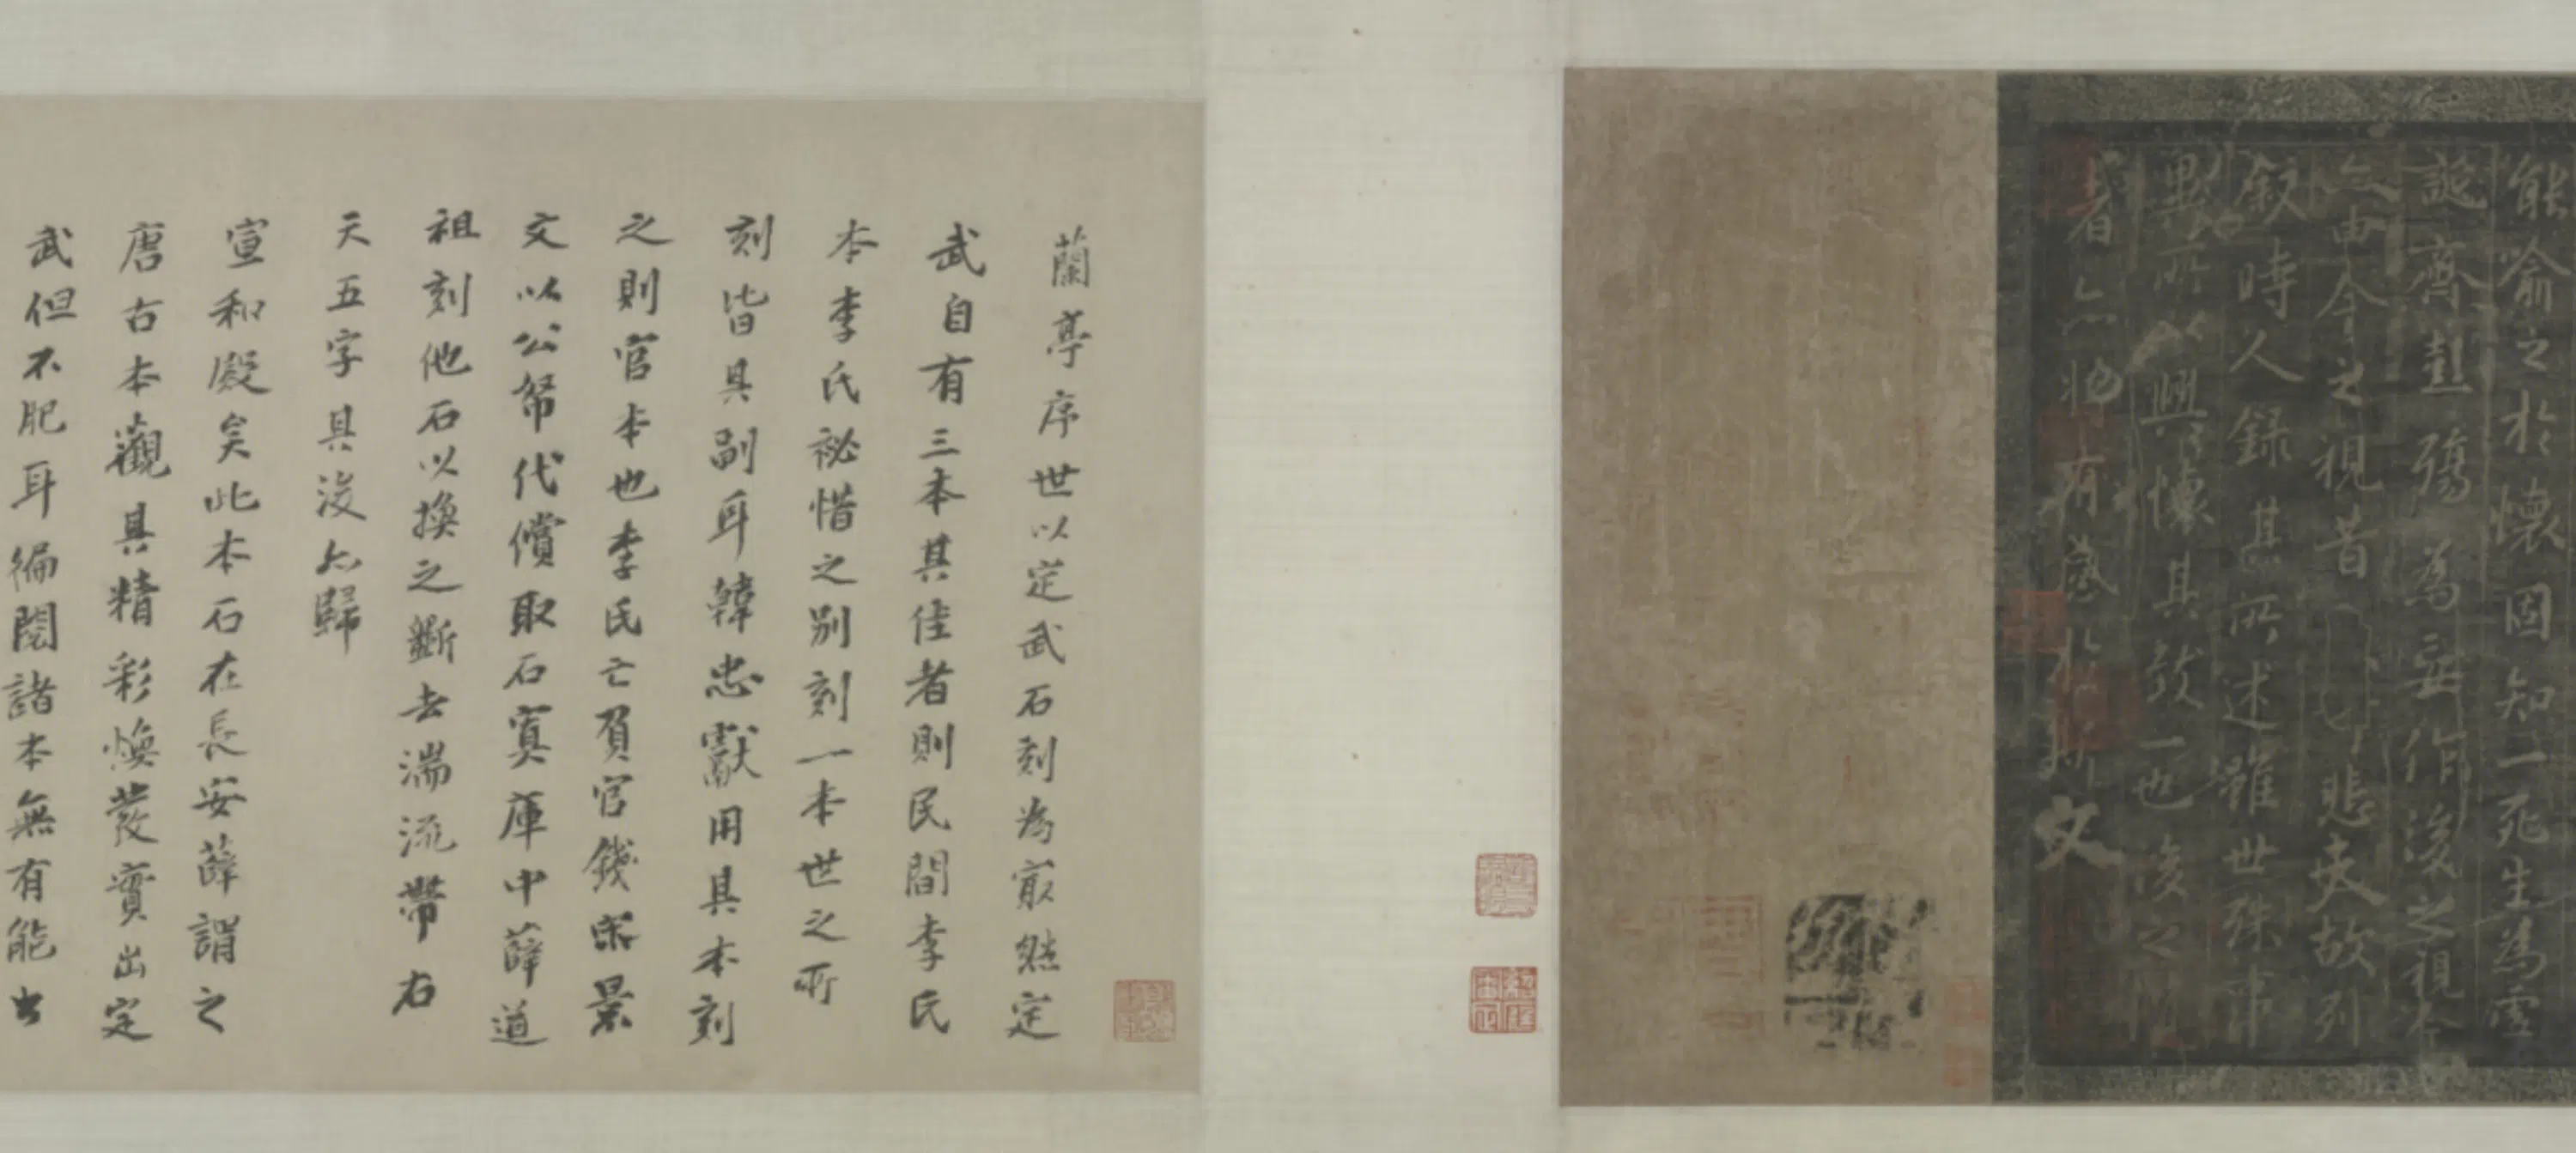 能喻之於懷固知一死生為虛
誕齊彭殤為妄作後之視今
亦由今之視昔悲夫故列
敘時人錄其所述雖世殊事
異所以興懷其致一也後之
者亦將有感於斯文
蘭亭序世以定武石刻為㝡然定
武自有三本其佳者則民間李氏
本李氏祕惜之別刻一本世之所
刻皆其副耳韓忠獻用其本刻
之則官本也李氏亡負官錢宋景
文以公帑代償取石寘庫中薛道
祖刻他石以換之斲去湍流帶右
天五字其後亦歸
宣和殿矣此本石在長安薛謂之
唐古本觀其精彩煥發實出定
武但不肥耳徧閱諸本無有能出